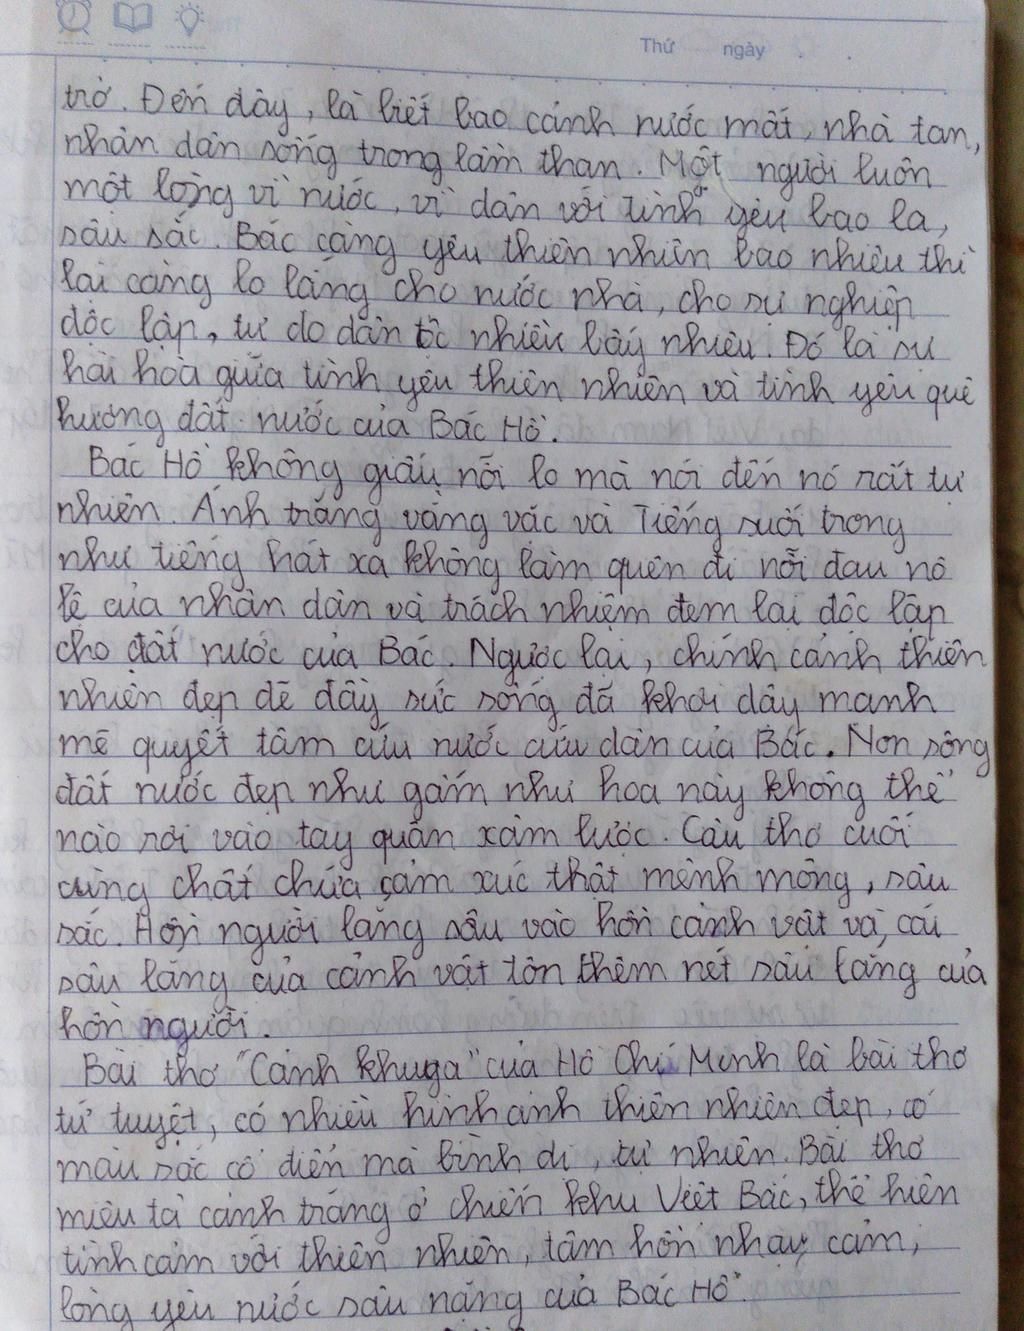 Thứ ngày
trở. Đến đây, là biết bao cảnh nước mất, nhà tan,
nhân dân sống trong lầm than. Một người luôn
một lòng vì nước, vì dân với tình yêu bao la,
sâu sắc. Bác càng yêu thiên nhiên bao nhiêu thì
lại càng lo lắng cho nước nhà, cho sự nghiệp
độc lập, tự do dân tộc nhiều bấy nhiêu. Đó là sự
hài hòa giữa tình yêu thiên nhiên và tình yêu quê
hương đất nước của Bác Hồ.
Bác Hồ không giấu nỗi lo mà nói đến nó rất tự
nhiên. Ánh trăng vằng vặc và Tiếng suối trong
như tiếng hát xa không làm quên đi nỗi đau nô
lệ của nhân dân và trách nhiệm đem lại độc lập
cho đất nước của Bác. Ngược lại, chính cảnh thiên
nhiên đẹp đẽ đầy sức sống đã khơi dậy mạnh
mẽ quyết tâm cứu nước cứu dân của Bác. Non sông
đất nước đẹp như gấm như hoa này không thể
nào rơi vào tay quân xâm lược. Câu thơ cuối
cùng chất chứa cảm xúc thật mênh mông, sâu
sắc. Hồn người lắng sâu vào hồn cảnh vật và, cái
sâu lắng của cảnh vật tôn thêm nét sâu lắng của
hồn người.
Bài thơ "Cảnh khuya" của Hồ Chí Minh là bài thơ
tứ tuyệt, có nhiều hình ảnh thiên nhiên đẹp, có
màu sắc cổ điển mà bình dị, tự nhiên. Bài thơ
miêu tả cảnh trăng ở chiến khu Việt Bắc, thể hiện
tình cảm với thiên nhiên, tâm hồn nhạy cảm,
lòng yêu nước sâu nặng của Bác Hồ.